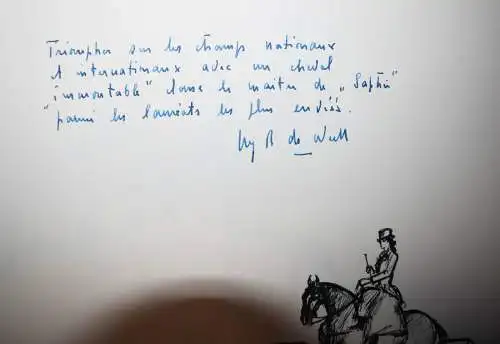 Triompher sur les champs nationaux
et internationaux avec un cheval
"immontable" classe le maitre de "Saphir"
parmi les lauréats les plus enviés.
de